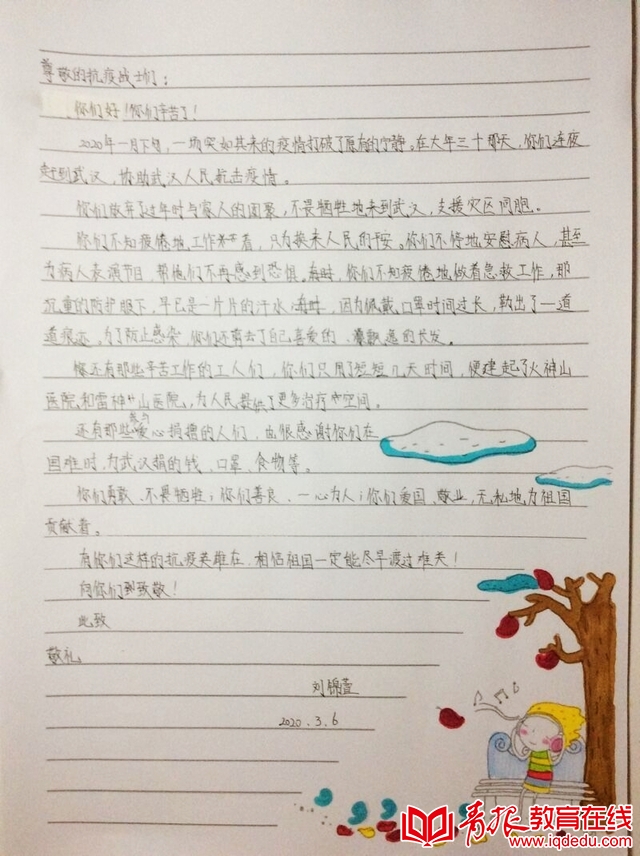 尊敬的抗疫战士们：
你们好！你们辛苦了！
2020年一月下旬，一场突如其来的疫情打破了原有的宁静。在大年三十那天，你们连夜
赶到武汉，协助武汉人民抗击疫情。
你们放弃了过年时与家人的团聚，不畏牺牲地来到武汉，支援灾区同胞。
你们不知疲倦地工作着，只为换来人民的平安。你们不停地安慰病人，甚至
为病人表演节目，帮他们不再感到恐惧。你们不知疲倦地做着急救工作，那
沉重的防护服下，早已是一片片的汗水，因为佩戴口罩时间过长，勒出了一道
道痕迹，为了防止感染，你们还剪去了自己喜爱的、飘逸的长发。
还有那些辛苦工作的工人们，你们只用了短短几天时间，便建起了火神山
医院和雷神山医院，为人民提供了更多治疗空间。
还有那些参与爱心捐赠的人们，也很感谢你们在
困难时，为武汉捐的钱、口罩、食物等。
你们勇敢、不畏牺牲；你们善良、一心为人；你们爱国、敬业，无私地为祖国
贡献着。
有你们这样的抗疫英雄在，相信祖国一定能尽早渡过难关！
向你们致敬！
此致
敬礼
刘锦萱
2020.3.6
青报教育在线
www.iqdedu.com